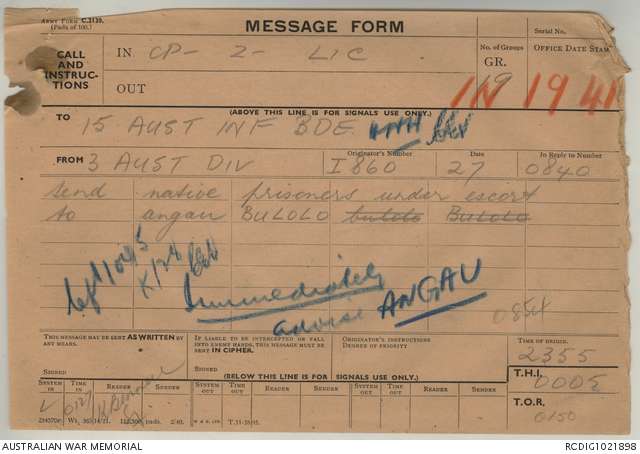 ARMY FORM C.2136.
(Pads of 100.)
MESSAGE FORM
Serial No.
CALL AND INSTRUC-TIONS
IN CP- 2- LIC
No. of Groups
GR. 19
OFFICE DATE STAMP
OUT
IN 1941
(ABOVE THIS LINE IS FOR SIGNALS USE ONLY.)
TO 15 AUST INF BDE
FROM 3 AUST DIV
Originator's Number I860
Date 27
In Reply to Number 0840
send native prisoners under escort
to angau BULOLO bulolo BULOLO
Immediately
advise ANGAU
0854
THIS MESSAGE MAY BE SENT AS WRITTEN BY ANY MEANS.
SIGNED
IF LIABLE TO BE INTERCEPTED OR FALL INTO ENEMY HANDS, THIS MESSAGE MUST BE SENT IN CIPHER.
SIGNED
ORIGINATOR'S INSTRUCTIONS
DEGREE OF PRIORITY
TIME OF ORIGIN
2355
(BELOW THIS LINE IS FOR SIGNALS USE ONLY.)
T.H.I. 0005
SYSTEM IN TIME IN READER SENDER SYSTEM OUT TIME OUT READER SENDER SYSTEM OUT TIME OUT READER SENDER
0127
T.O.R. 0150
AUSTRALIAN WAR MEMORIAL
RCDIG1021898